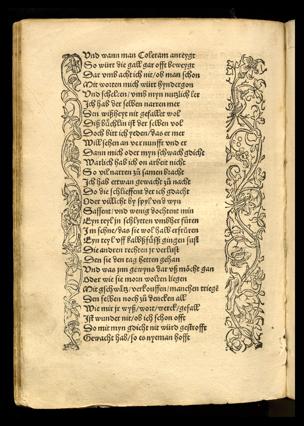 Vnd wann man Coleram anreygt
So würt die gall gar offt beweygt
Dar vmb acht ich nit / ob man schon
Mit worten mich würt hyndergon
Vnd schelten / vmb myn nutzlich ler
Ich hab der selben narren mer
Den wißheyt nit gefallet wol
Diß büchlin ist der selben vol
Doch bitt ich yeden / das er mer
Will sehen an vernunfft vnd er
Dann mich oder myn schwach gdicht
Worlich hab ich on arbeit nicht
So vil narren zů samen bracht
Ich hab ettwan gewacht zů nacht
Do die schlieffent der ich gdacht
Oder villicht by spyl vnd wyn
Sassent / vnd wenig dochtent min
Eyn teyl jn schlytten vmbher fůren
Im schne / das sie wol halb erfrüren
Eyn teyl vff kalbßfüß gingen sust
Die andren rechten jr verlust
Den sie den tag hetten gehan
Vnd was jnn gewynn dar vß möcht gan
Oder wie sie morn wolten liegen
Mit gschwätz / verkouffen / manchen triegē
Den selben noch zů dencken all
Wie mir jr wyß / wort / werck / gefall
Ist wunder nit / ob ich schon offt
So mit myn gdicht nit würd gestrofft
Gewacht hab / so es nyeman hofft